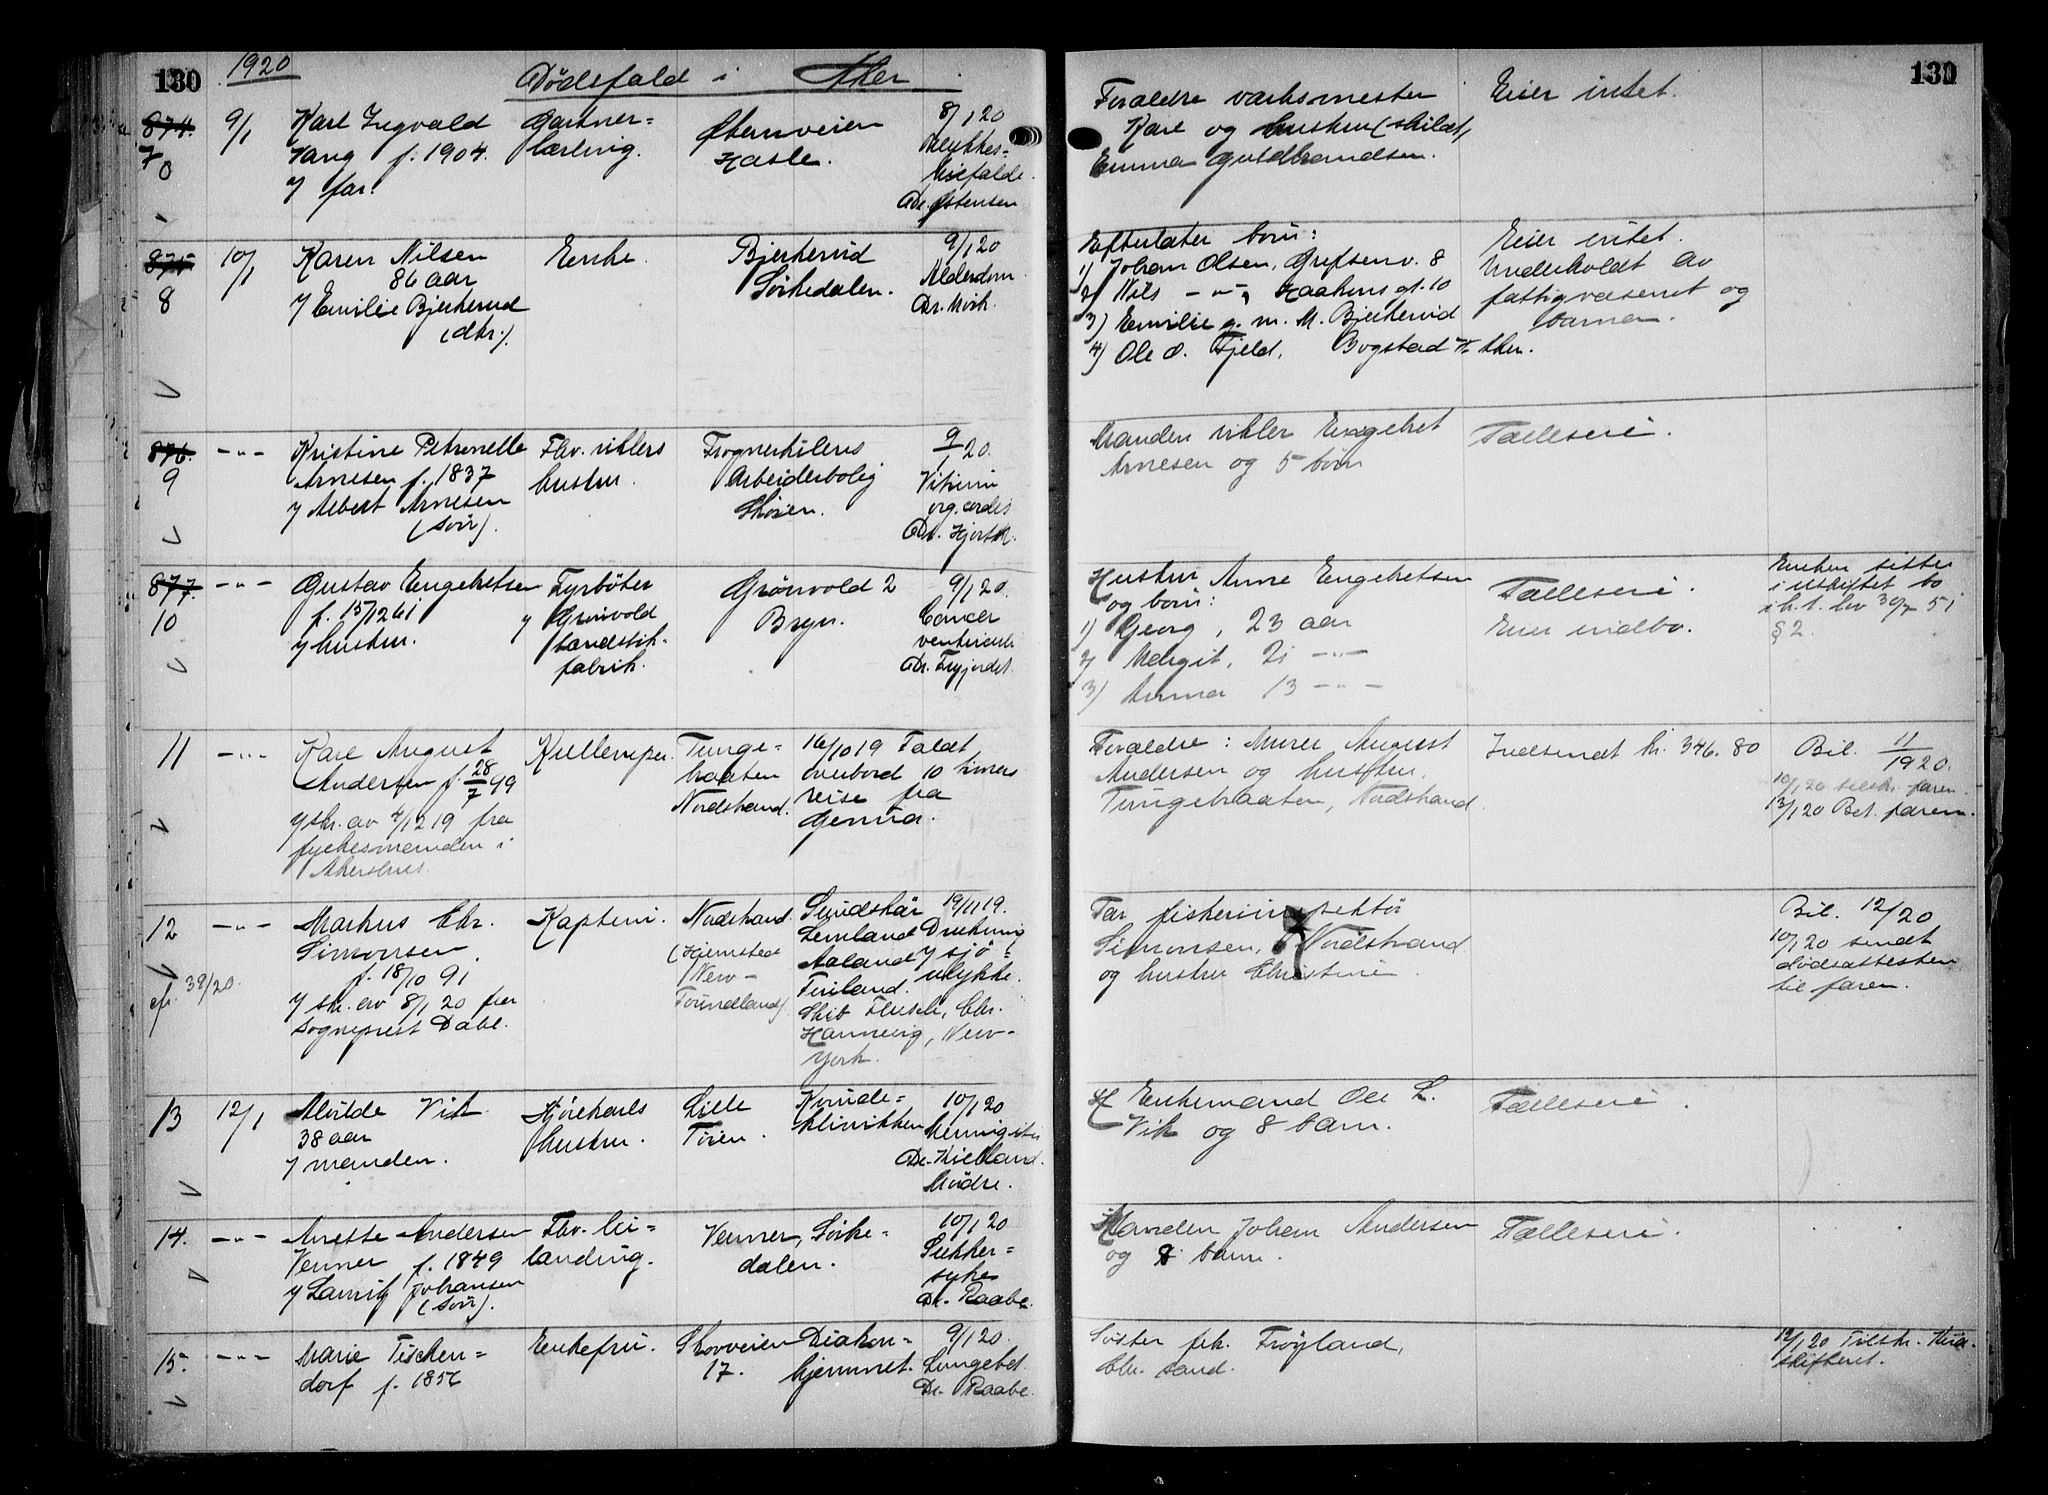 130
1920
Dødsfald i Aker
874.
7
9/1
Karl Ingvald
Vang f. 1904.
y far.
Gartner=
lærling.
Økernveien
Hasle.
8/1 20
Ulykkes=
tilfælde.
Dr. Østensen
875
8
10/1
Karen Nilsen
86 aar
y Emilie Bjerkerud
(dtr.).
Enke.
Bjerkerud
Sørkedalen.
9/1 20
Alderdom
Dr. Mørk.
876.
9
-"-
Kristine Petronelle
Arnesen f. 1837
y Albert Arnesen
(søn).
Fhv. viklers
hustru.
Frognerkilens
Arbeiderbolig
Skøien.
9/1 20.
Vitium
org. cordis
Dr. Hjorth.
877.
10
-"-
Gustav Engebretsen
f. 15/12 61
y hustru.
Fyrbøter
y Grønvold
tændstik-
fabrik.
Grønvold 2
Bryn.
9/1 20.
Cancer
ventriculi
11
-"-
Karl August
Andersen f. 28/7 99
y skr. av 4/12 19 fra
fylkesmanden i
Akershus
Kullemper.
Tunge=
braaten
Nordstrand.
16/10 19 Faldt
overbord 10 timers
reise fra
Genua.
12
efr. 38/20.
-"-
Markus Chr.
Simonsen
f. 18/10 91
y skr. av 8/1 20 fra
sogneprest Dahl.
Kaptein.
Nordstrand.
(Hjemsted
New-
Foundland)
Sundskär 19/11 19.
Lemland Drukning
Aaland y sjø=
Finland. ulykke.
Skib Flush, Chr.
Hannevig, New-
York.
13
12/1
Alvilde Vik
38 aar
y manden.
Kjørekarls
hustru.
Lille
Tøien.
Kvinde=
klinikken
10/1 20
meningitis
Dr. Kielland
Mødre.
14.
-"-
Anette Andersen
Venner f. 1849
y Laurits Johansen
(søn).
Fhv. lei=
lænding.
Venner, Sørke=
dalen.
10/1 20
Sukker=
syke
Dr. Raabe.
15.
-"-
Marie Tischen=
dorf f. 1856
Enkefru.
Skovveien
17.
Diakon=
hjemmet.
9/1 20.
Lungebet.
Dr. Raabe.
131
Forældre værksmester
Karl og hustru (skildt)
Emma Guldbrandsen.
Eier intet.
Efterlater børn:
1) Johan Olsen, Grefsenv. 8
2) Nils -"-, Haakons gt. 10
3) Emilie g. m. M. Bjerkerud
4) Ole O. Fjeld, Bogstad V. Aker.
Eier intet.
Underholdt av
fattigvæsenet og
barna.
Manden vikler Engebret
Arnesen og 5 børn
Fælleseie.
Hustru Anne Engebretsen
og børn:
1) Georg, 23 aar
2) Margit, 21 -"-
3) Anna 13 -"-
Fælleseie.
Eier indbo.
Enken sitter
i uskiftet bo
i h. t. lov 30/7 51
§ 2.
Forældre: Murer August
Andersen og hustru.
Tungebraaten, Nordstrand.
Indsendt kr. 346.80
Bil. 11/1920.
10/1 20 tilskr. faren.
13/1 20 Bet. faren.
Far fiskeriinspektør
Simonsen, Nordstrand
og hustru Christine.
Bil. 12/20
10/1 20 sendt
dødsattesten
til faren.
Enkemand Ole L.
Vik og 8 barn.
Fælleseie.
Manden Johan Andersen
og 8 barn.
Fælleseie.
Søster frk. Frøyland,
Chr. sand.
12/1 20 Tilskr. Kria.
skifteret.